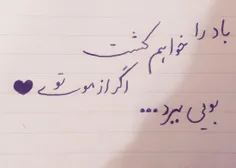 باد را
خواهم کشت
اگر از موی تو
بویی ببرد...